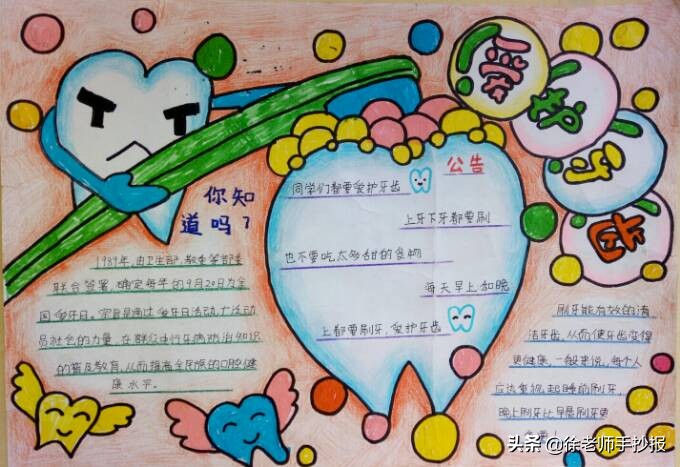 爱护牙齿
你知
道吗?
1989年,由卫生部、教委等部委
联合签署,确定每年的9月20日为全
国爱牙日。宗旨是通过爱牙日活动,广泛动
员社会的力量,在群众中行牙病防治知识
的普及教育,从而提高全民族的口腔健
康水平。
公告
同学们都要爱护牙齿
上牙下牙都要刷
也不要吃太多甜的食物
每天早上和晚
上都要刷牙,爱护牙齿
刷牙能有效的清
洁牙齿,从而使牙齿变得
更健康。一般来说,每个人
应该重视起睡前刷牙,
晚上刷牙比早晨刷牙更
头条 @徐老师手抄报